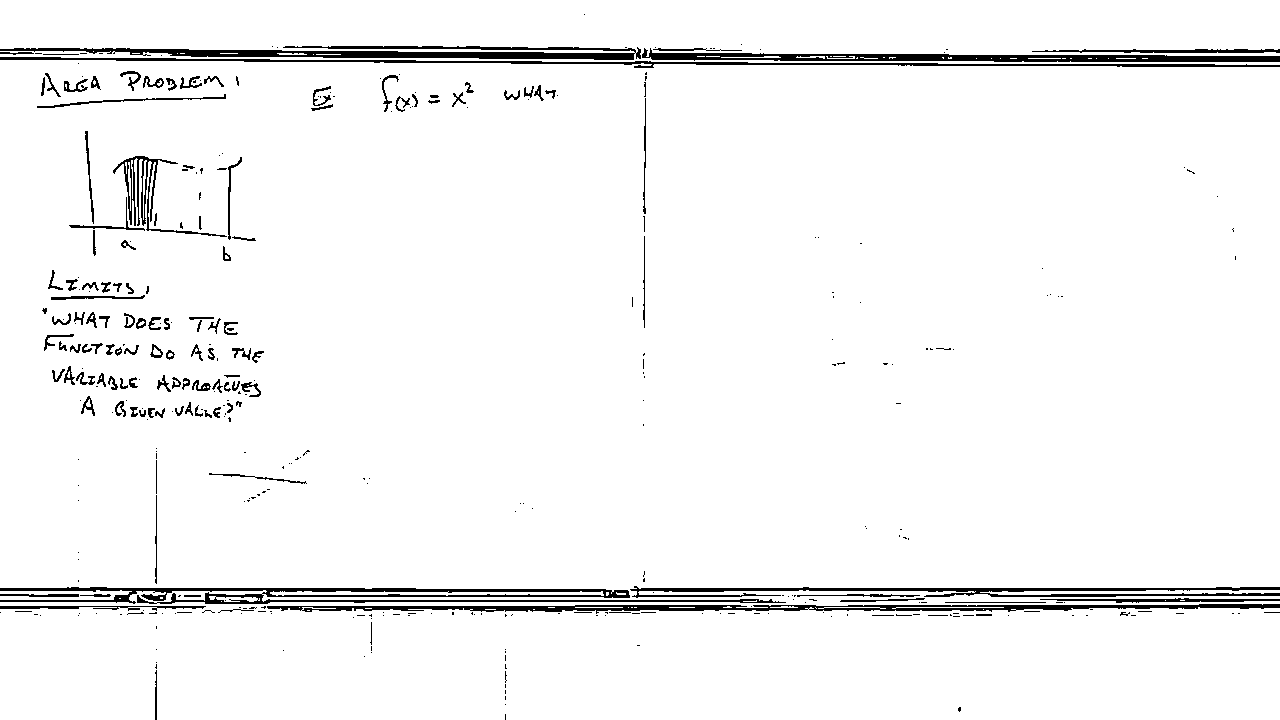 AREA PROBLEM:
a
b
LIMITS:
"WHAT DOES THE
FUNCTION DO AS THE
VARIABLE APPROACHES
A GIVEN VALUE?"
Ex f(x) = x² WHAT